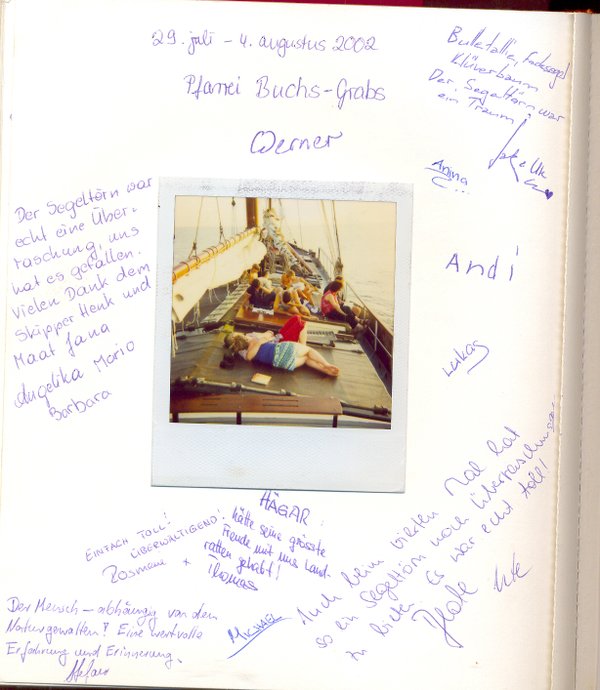 29. juli – 4. augustus 2002
Pfarrei Buchs-Grabs
Werner
Der Segeltörn war
ein Traum!
Anina
Andi
Lukas
Der Segeltörn war
echt eine Über-
raschung, uns
hat es gefallen.
Vielen Dank dem
Skipper Henk und
Maat Jana
Angelika Mario
Barbara
EINFACH TOLL!
ÜBERWÄLTIGEND!
HÄGAR
hätte seine grösste
Freude mit uns Land-
ratten gehabt!
Thomas
Michael
Auch beim vierten Mal hat
so ein Segeltörn noch Überraschungen
zu bieten. Es war echt toll!
Der Mensch – abhängig von den
Naturgewalten! Eine wertvolle
Erfahrung und Erinnerung.
Stefan